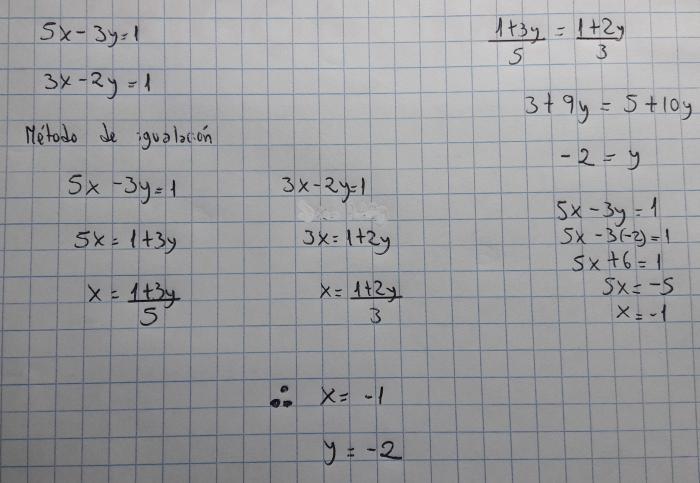 5x - 3y = 1
3x - 2y = 1
Método de igualación
5x - 3y = 1
5x = 1 + 3y
x = (1 + 3y)/5
3x - 2y = 1
3x = 1 + 2y
x = (1 + 2y)/3
(1 + 3y)/5 = (1 + 2y)/3
3 + 9y = 5 + 10y
-2 = y
5x - 3y = 1
5x - 3(-2) = 1
5x + 6 = 1
5x = -5
x = -1
∴ x = -1
y = -2